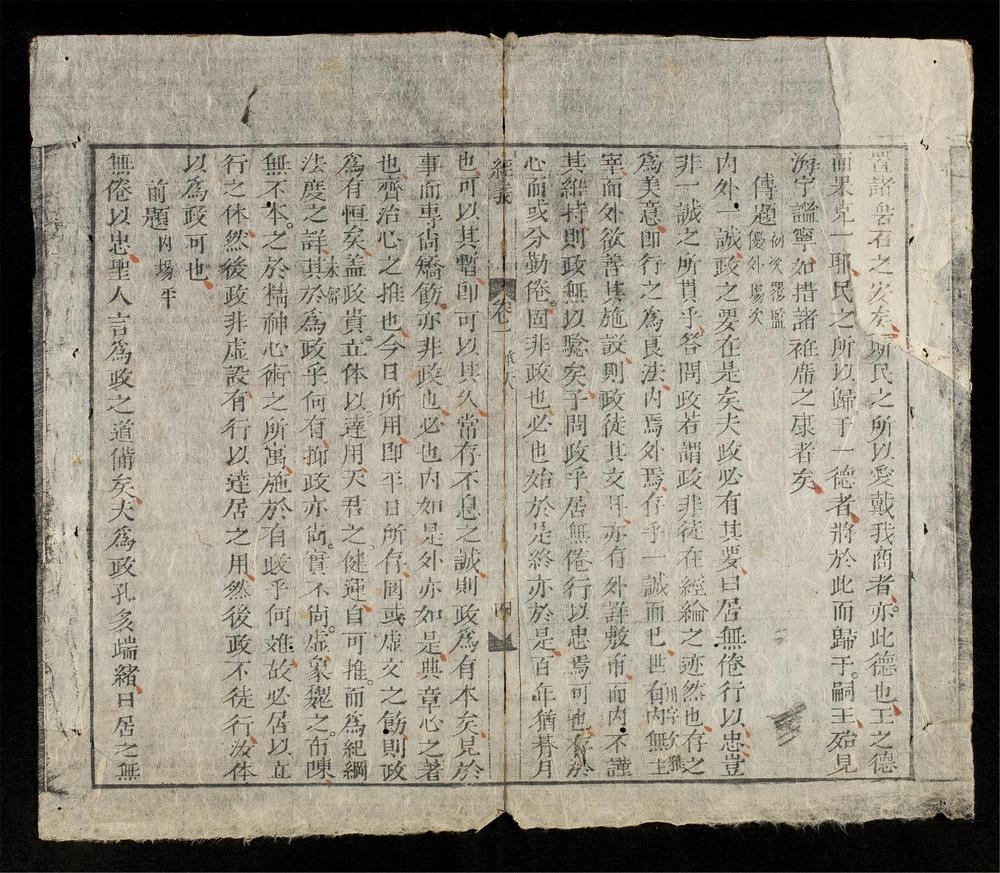 置諸磐石之安矣斯民之所以愛戴我商者亦此德也王之德
而果克一耶民之所以歸于一德者將於此而歸于嗣王殆見
海宇謐寧如措諸袵席之康者矣
傳題 例次覆監優外場次
內外一誠政之要在是矣夫政必有其要曰居無倦行以忠豈
非一誠之所貫乎答問政若謂政非徒在經綸之迹然也存之
為美意即行之為良法內焉外焉存乎一誠而已世有內無主
宰而外欲善其施設則政徒其文耳亦有外詳敷布而內不謹
其維持則政無以驗矣子問政乎居無倦行以忠焉可也存於
心而或分勤倦固非政也必也始於是終亦於是百年猶朞月
經義 卷二 四
也可以其暫即可以其久常存不息之誠則政為有本矣見於
事而專尚矯飾亦非政也必也內如是外亦如是典章心之著
也齊治心之推也今日所用即平日所存罔或虛文之飭則政
為有恒矣蓋政貴立体以達用天君之健運自可推而為紀綱
法度之詳其於為政乎何有抑政亦尚實不尚虛象魏之布陳
無不本之於精神心術之所寓施於有政乎何难故必居以立
行之体然後政非虛設有行以達居之用然後政不徒行汝体
以為政可也
前題 內場平
無倦以忠聖人言為政之道備矣夫為政孔多端緒曰居之無